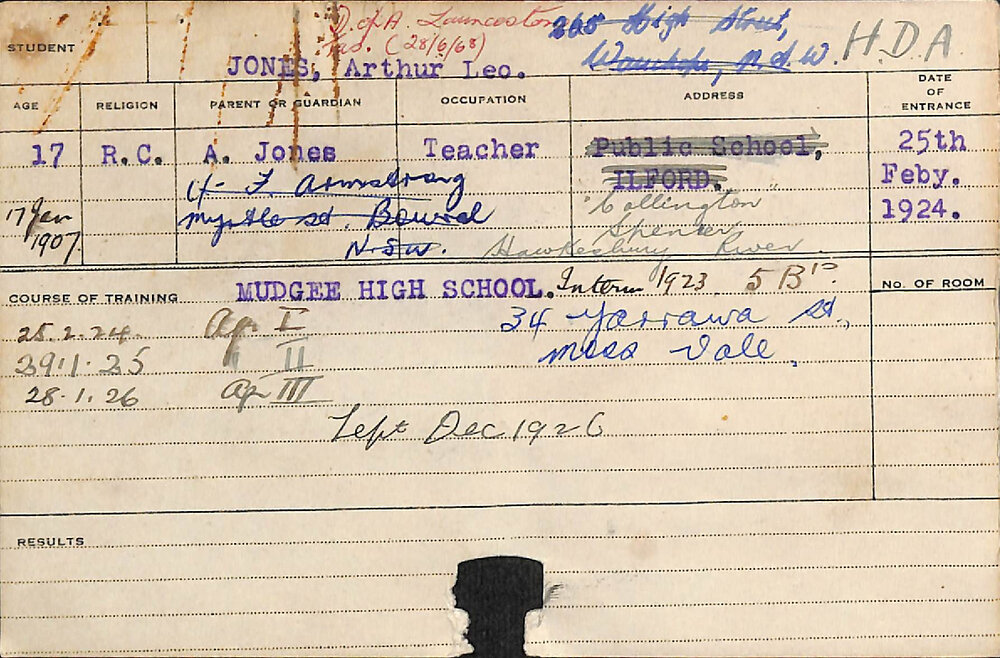 D. of A. Launceston
Tas. (28/6/68)
268 High Street,
Wauchope, N.S.W.
H.D.A
STUDENT
JONES, Arthur Leo.
AGE RELIGION PARENT OR GUARDIAN OCCUPATION ADDRESS DATE OF ENTRANCE
17 R.C. A. Jones Teacher Public School, 25th
ILFORD. Feby.
1924.
c/- F Armstrong
Myrtle St. Bowral
N.S.W.
17 Jan
1907
"Collington"
Spencer
Hawkesbury River
COURSE OF TRAINING MUDGEE HIGH SCHOOL. Interm 1923 5 B's No. OF ROOM
25.2.24 Ap I
34 Yarrawa St.,
29.1.25 " II
Moss Vale.
28.1.26 Ap III
Left Dec 1926
RESULTS